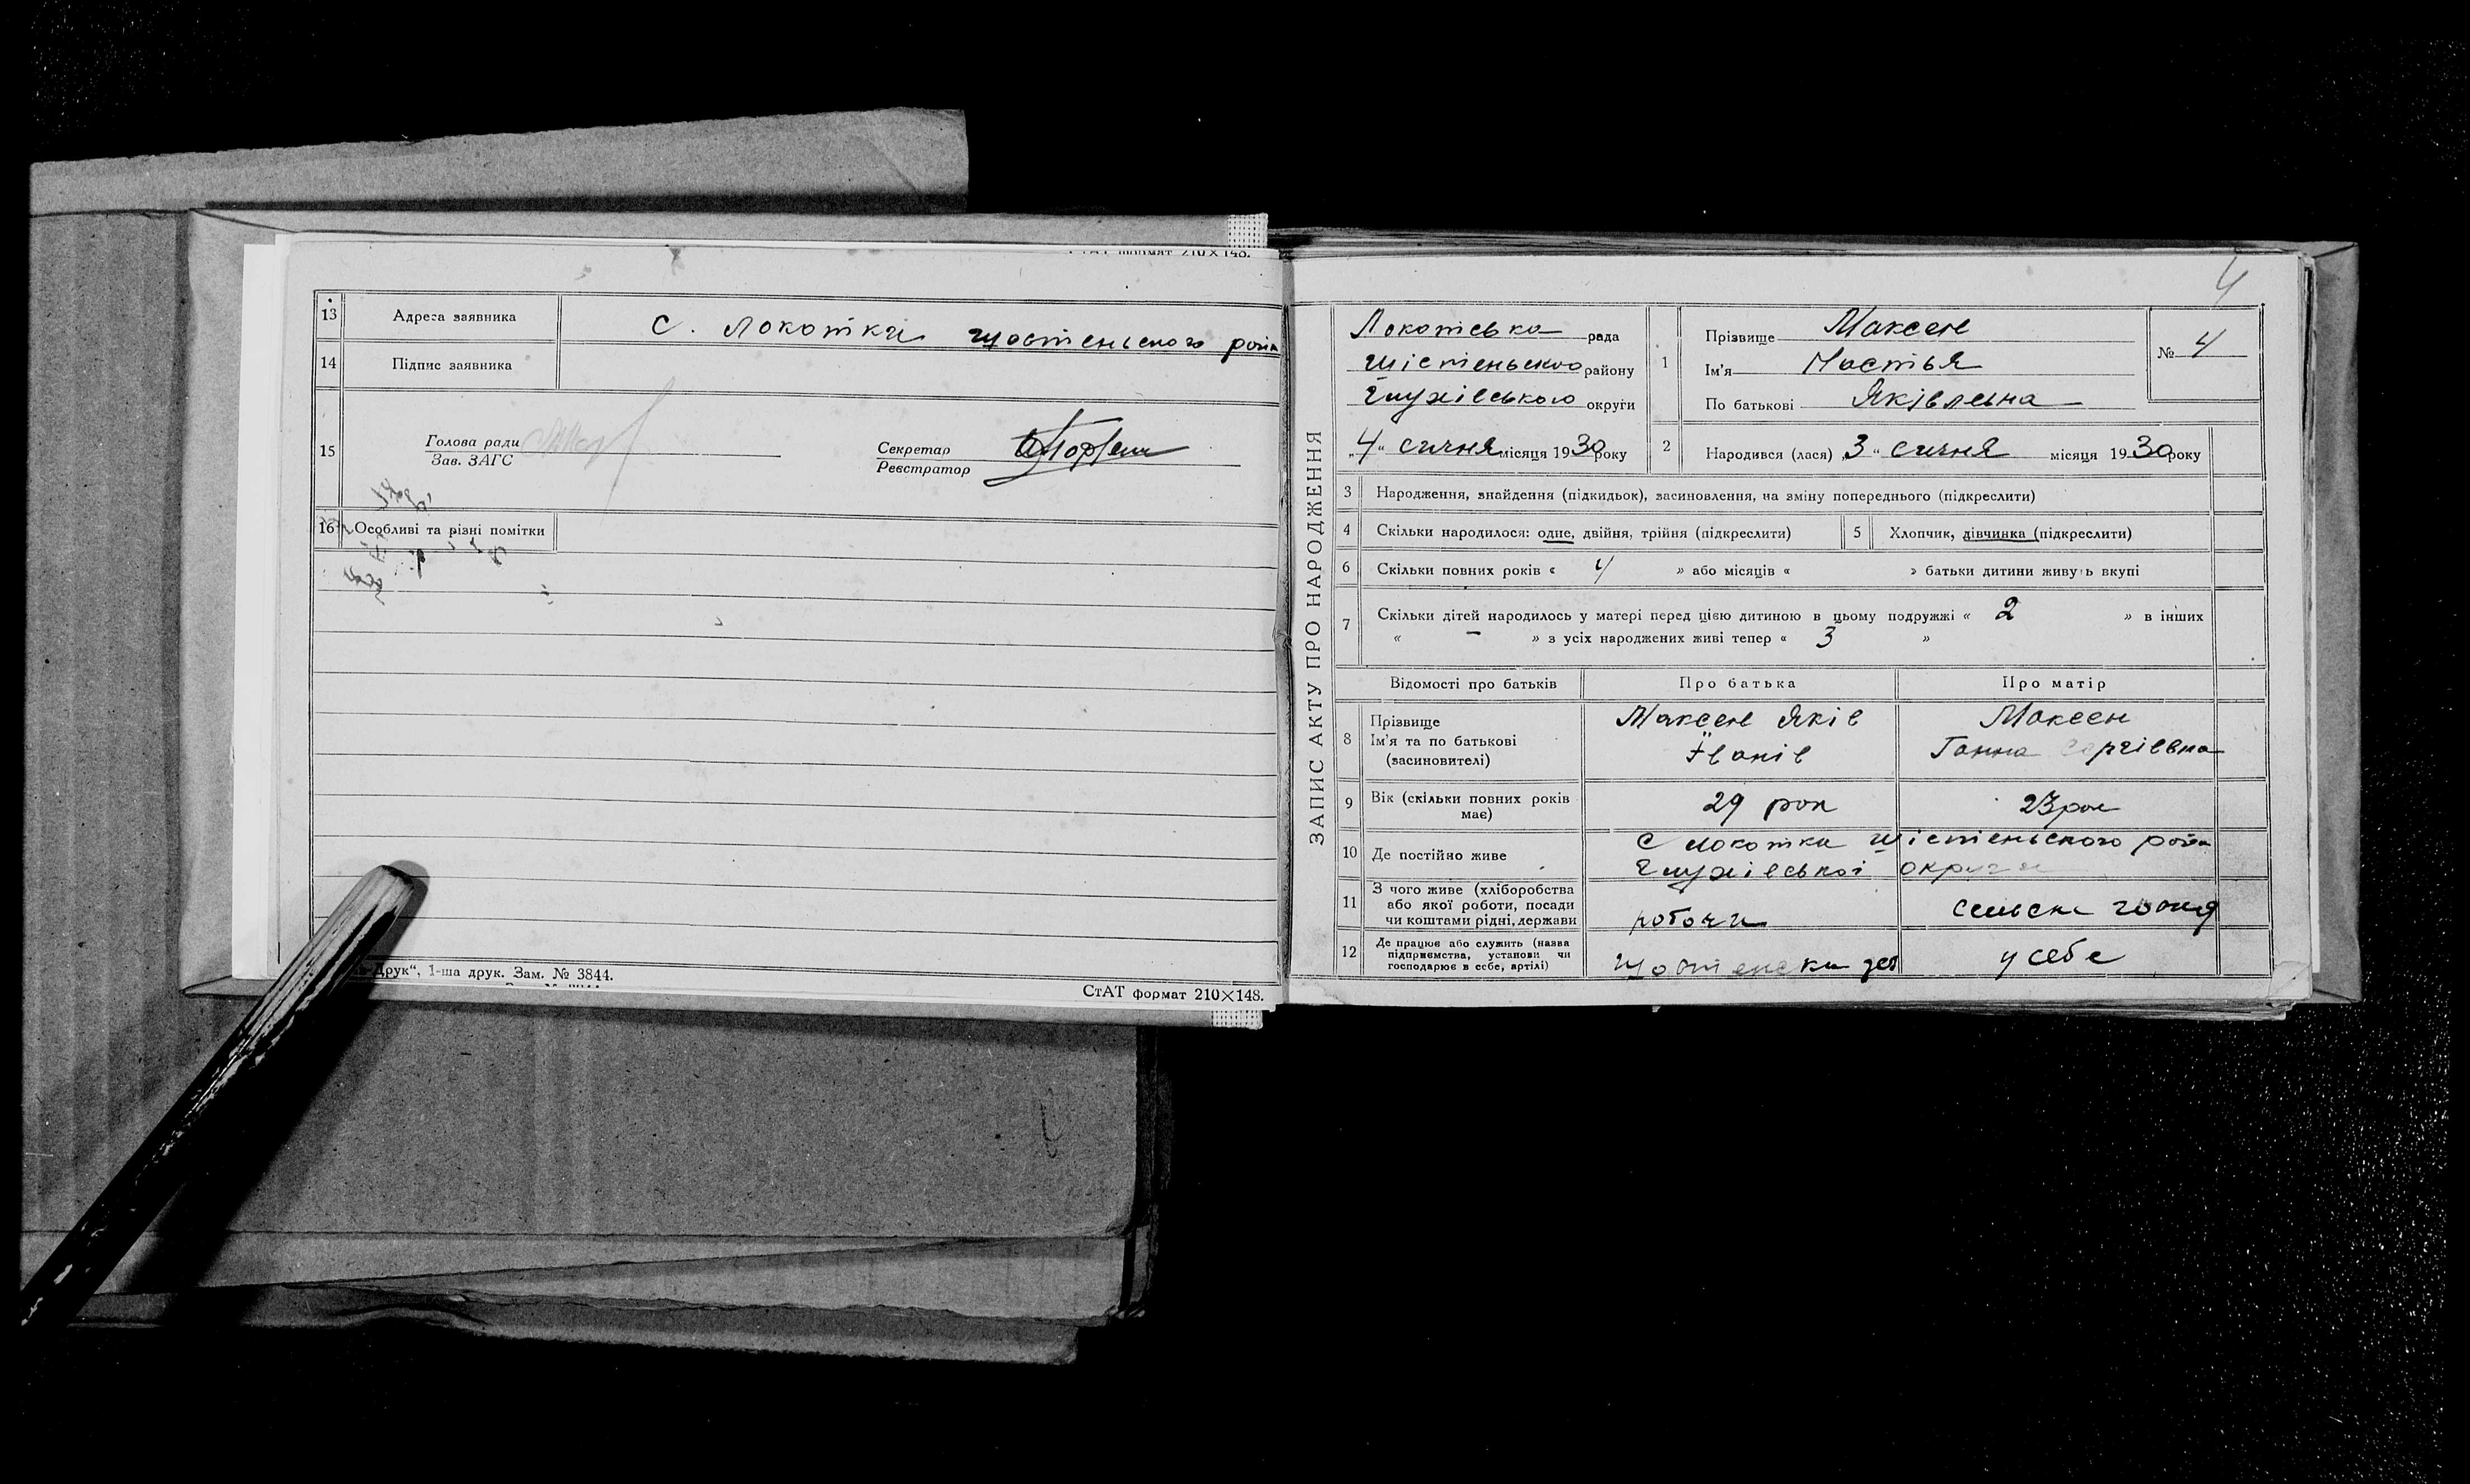 СтАТ формат 210×148.
13 Адреса заявника с. Локотки Шостенського район
14 Підпис заявника
15 Голова ради Секретар
Зав. ЗАГС Реєстратор
16 Особливі та різні помітки
Друк“, 1-ша друк. Зам. № 3844.
СтАТ формат 210×148.
4
ЗАПИС АКТУ ПРО НАРОДЖЕННЯ
Локотська рада
Шістенського району
Глухівського округи
„4“ січня місяця 1930 року
1 Прізвище Максен
Ім'я Настья
По батькові Яківлевна
№ 4
2 Народився (лася) „3“ січня місяця 1930 року
3 Народження, знайдення (підкидьок), засиновлення, на зміну попереднього (підкреслити)
4 Скільки народилося: одне, двійня, трійня (підкреслити) 5 Хлопчик, дівчинка (підкреслити)
6 Скільки повних років « 4 » або місяців « » батьки дитини живуть вкупі
7 Скільки дітей народилось у матері перед цією дитиною в цьому подружжі « 2 » в інших
« — » з усіх народжених живі тепер « 3 »
Відомості про батьків Про батька Про матір
8 Прізвище Максен Яків Максен
Ім'я та по батькові Їванів Ганна Сергіевна
(засиновителі)
9 Вік (скільки повних років має) 29 рок 23 рок
10 Де постійно живе с Локотки Шістенського район
Глухівської округи
11 З чого живе (хліборобства
або якої роботи, посади
чи коштами рідні, держави робочи сельске
12 Де працює або служить (назва
підприємства, установи чи
господарює в себе, артілі) Шостенски у себе